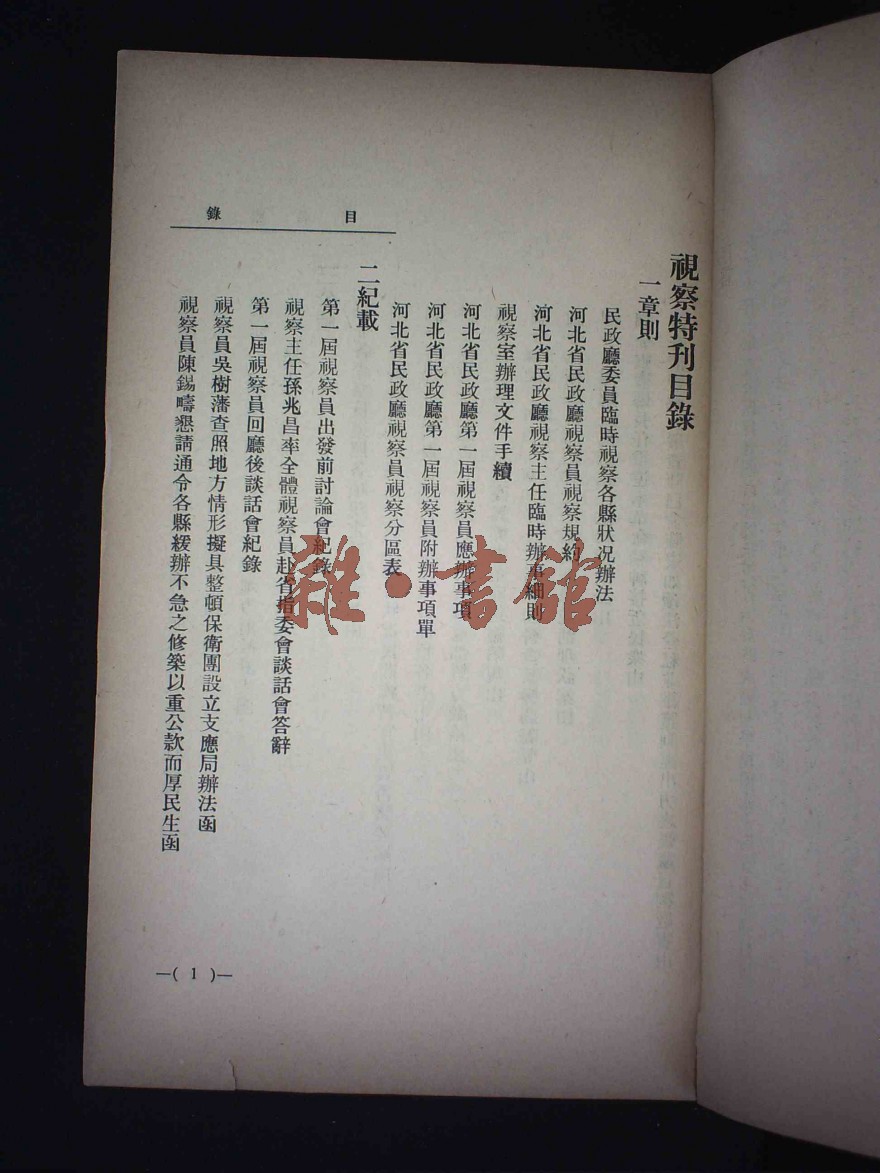 視察特刊目錄
一章則
民政廳委員臨時視察各縣狀况辦法
河北省民政廳視察員視察規約
河北省民政廳視察主任臨時辦事細則
視察室辦理文件手續
河北省民政廳第一屆視察員應辦事項
河北省民政廳第一屆視察員附辦事項單
河北省民政廳視察員視察分區表
二紀載
第一屆視察員出發前討論會紀錄
視察主任孫兆昌率全體視察員赴省指委會談話會答辭
第一屆視察員回廳後談話會紀錄
視察員吳樹藩查照地方情形擬具整頓保衛團設立支應局辦法函
視察員陳錫疇懇請通令各縣緩辦不急之修築以重公款而厚民生函
目錄
—( 1 )—
雜·書館